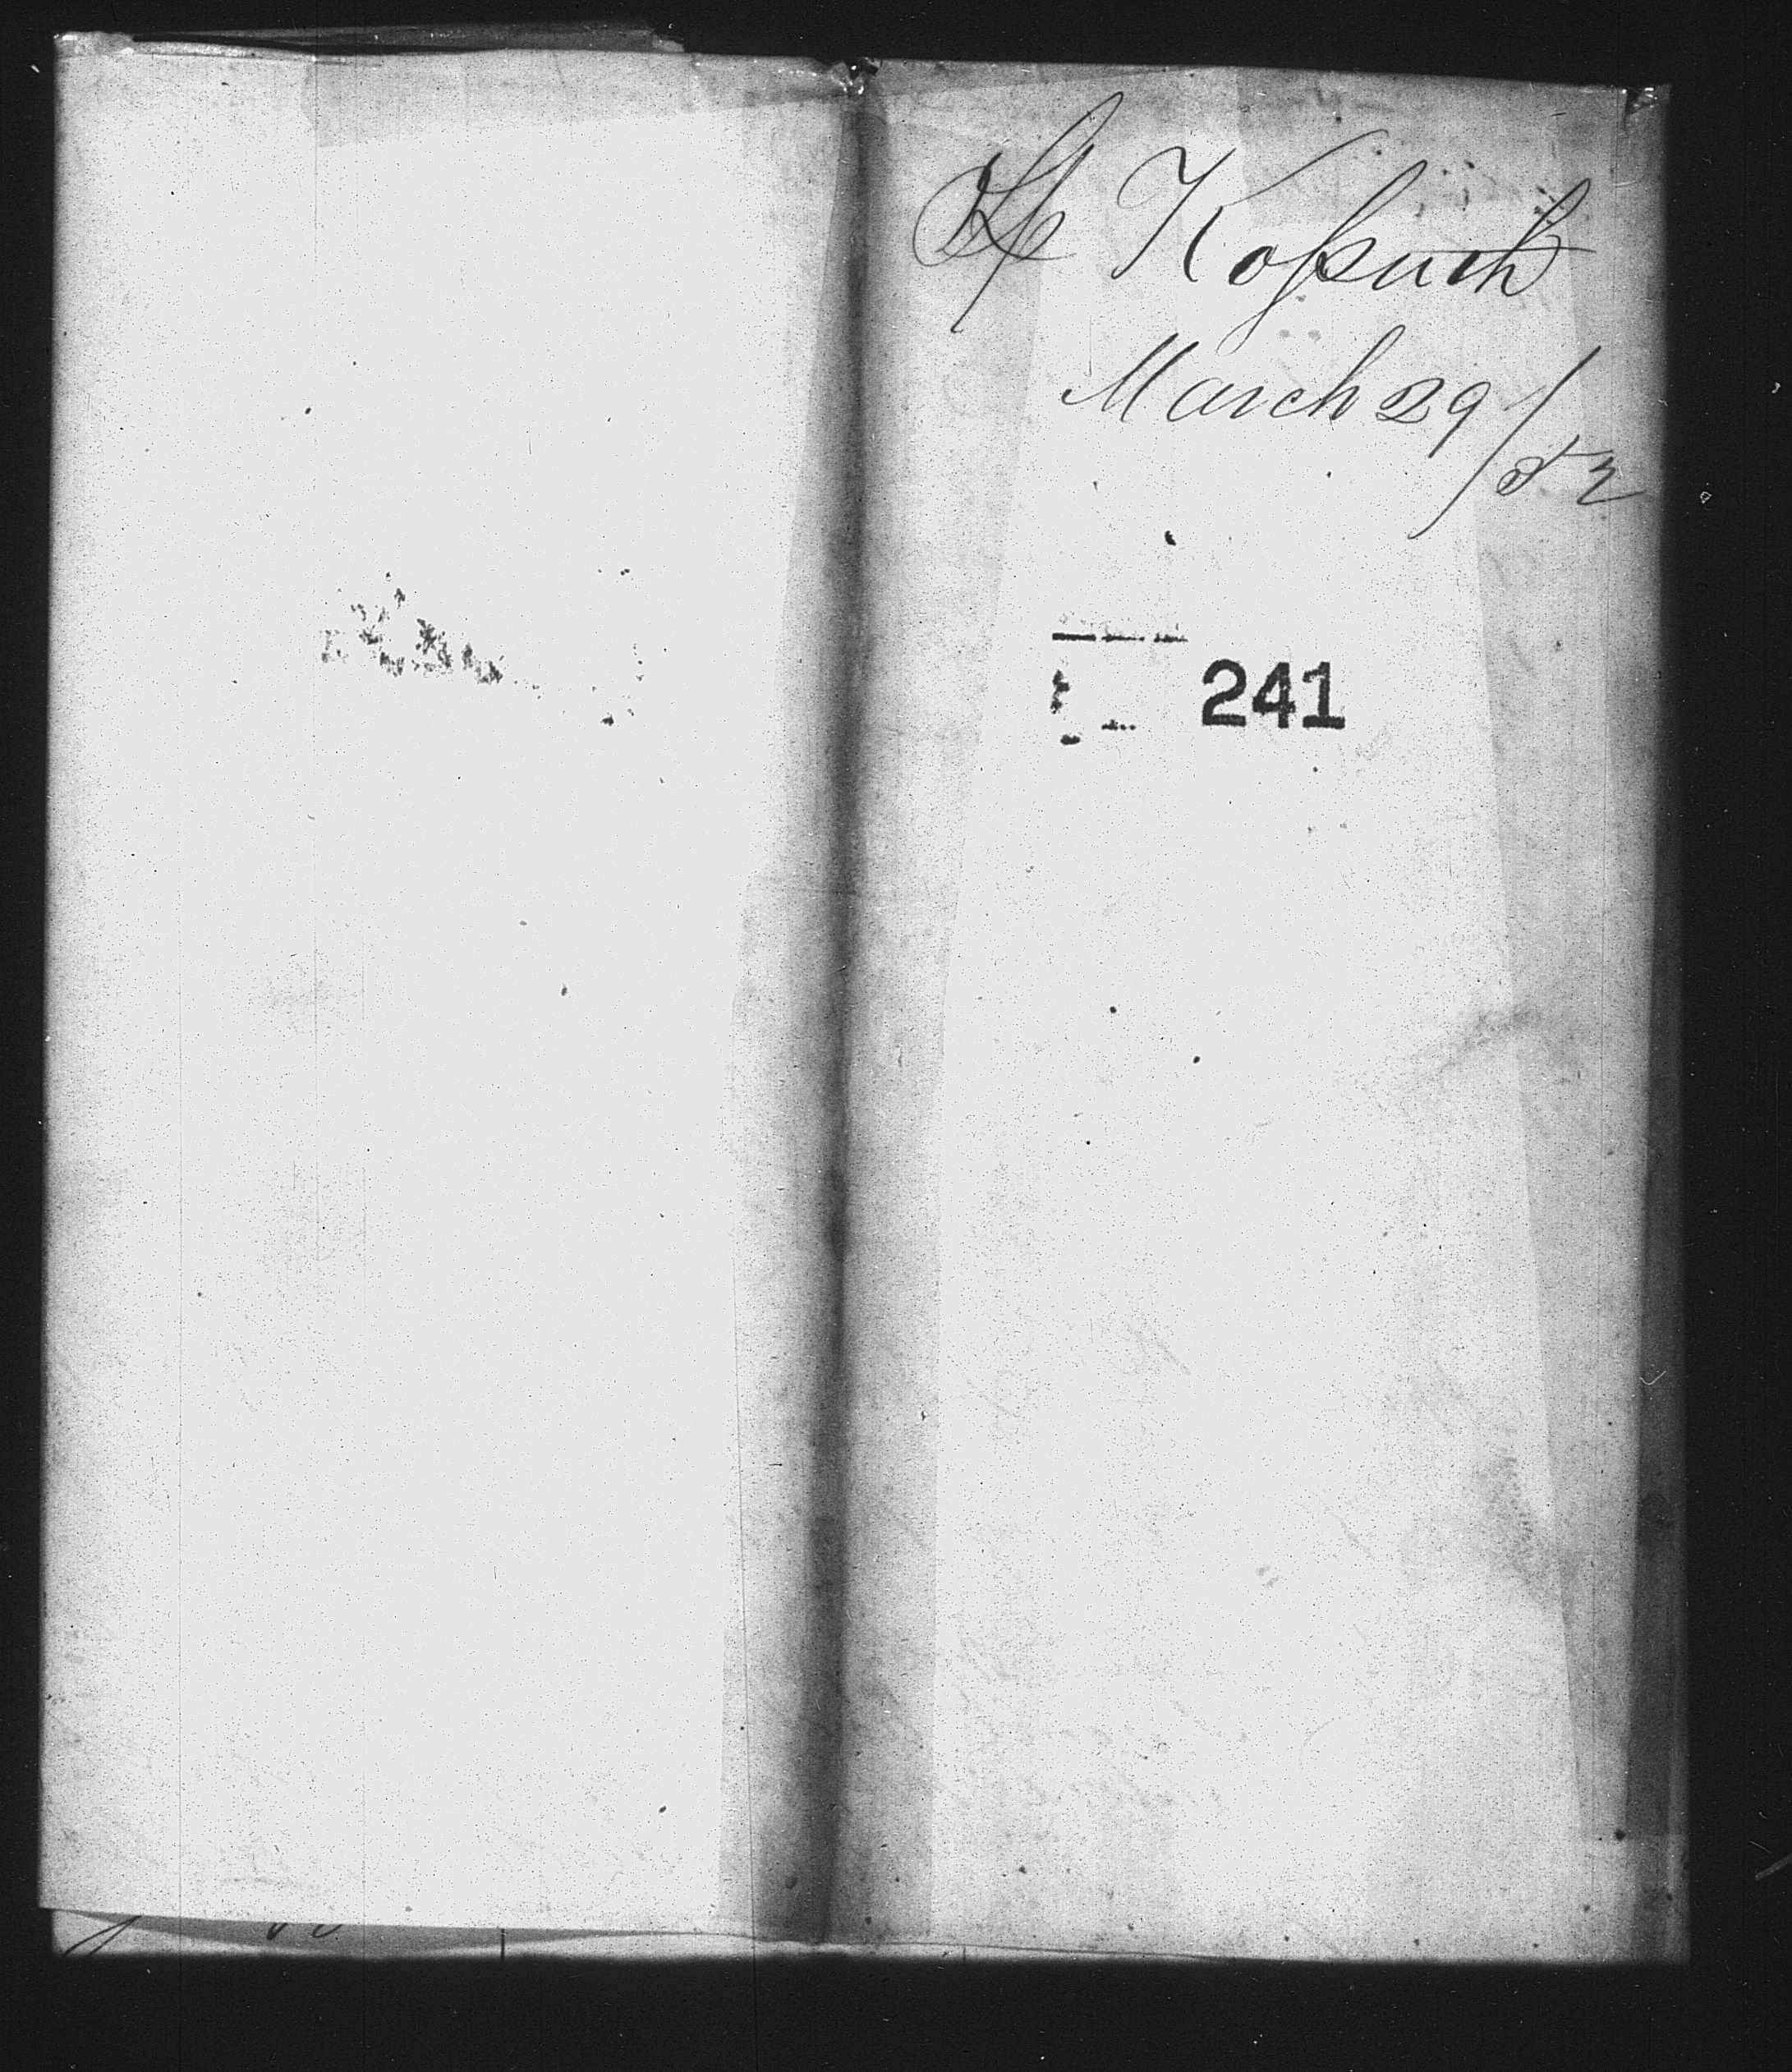 St Koſsuth
March 29/52
241